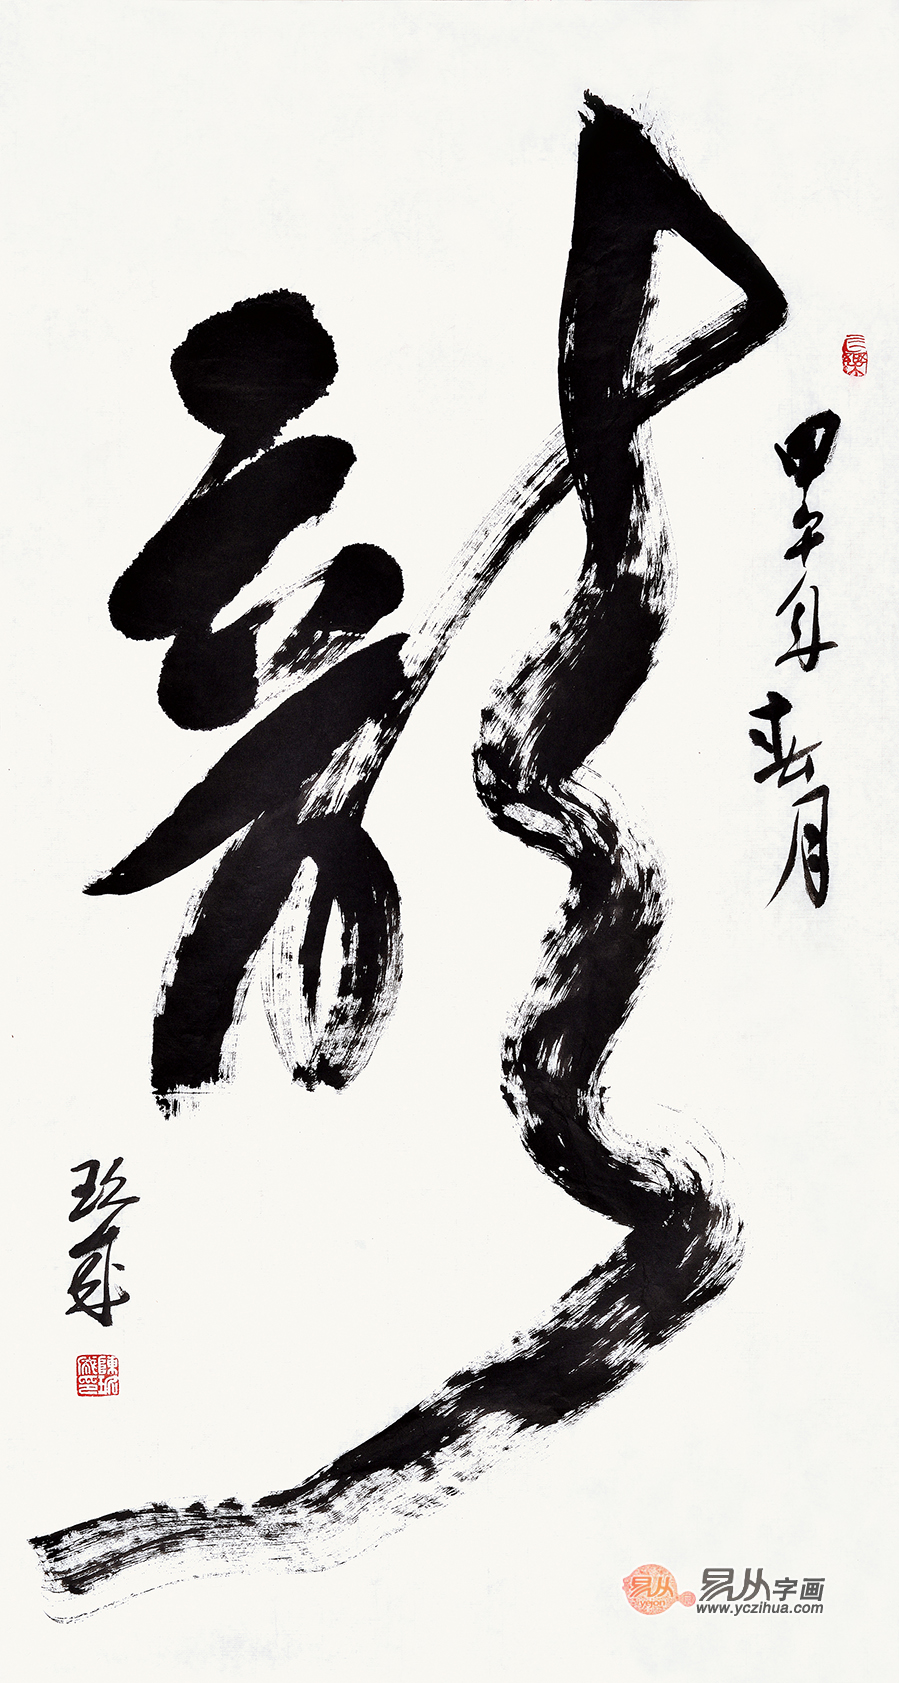 龍
甲午年
春月
玖
易从
易从字画
www.yczihua.com